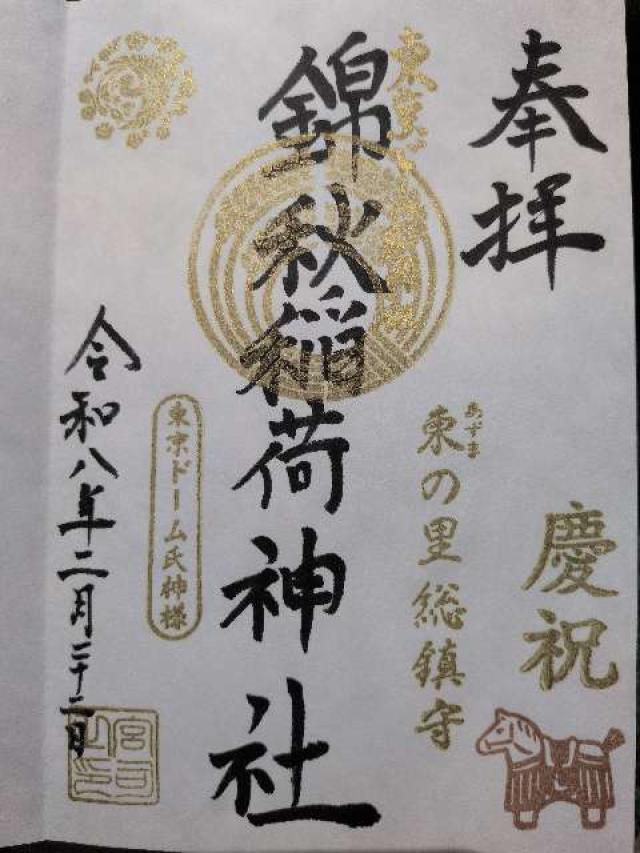 奉拝
慶祝
東の里総鎮守
あずま
東京ドーム
錦秋稲荷神社
東京ドーム氏神様
令和八年二月二十二日
宮司
之印